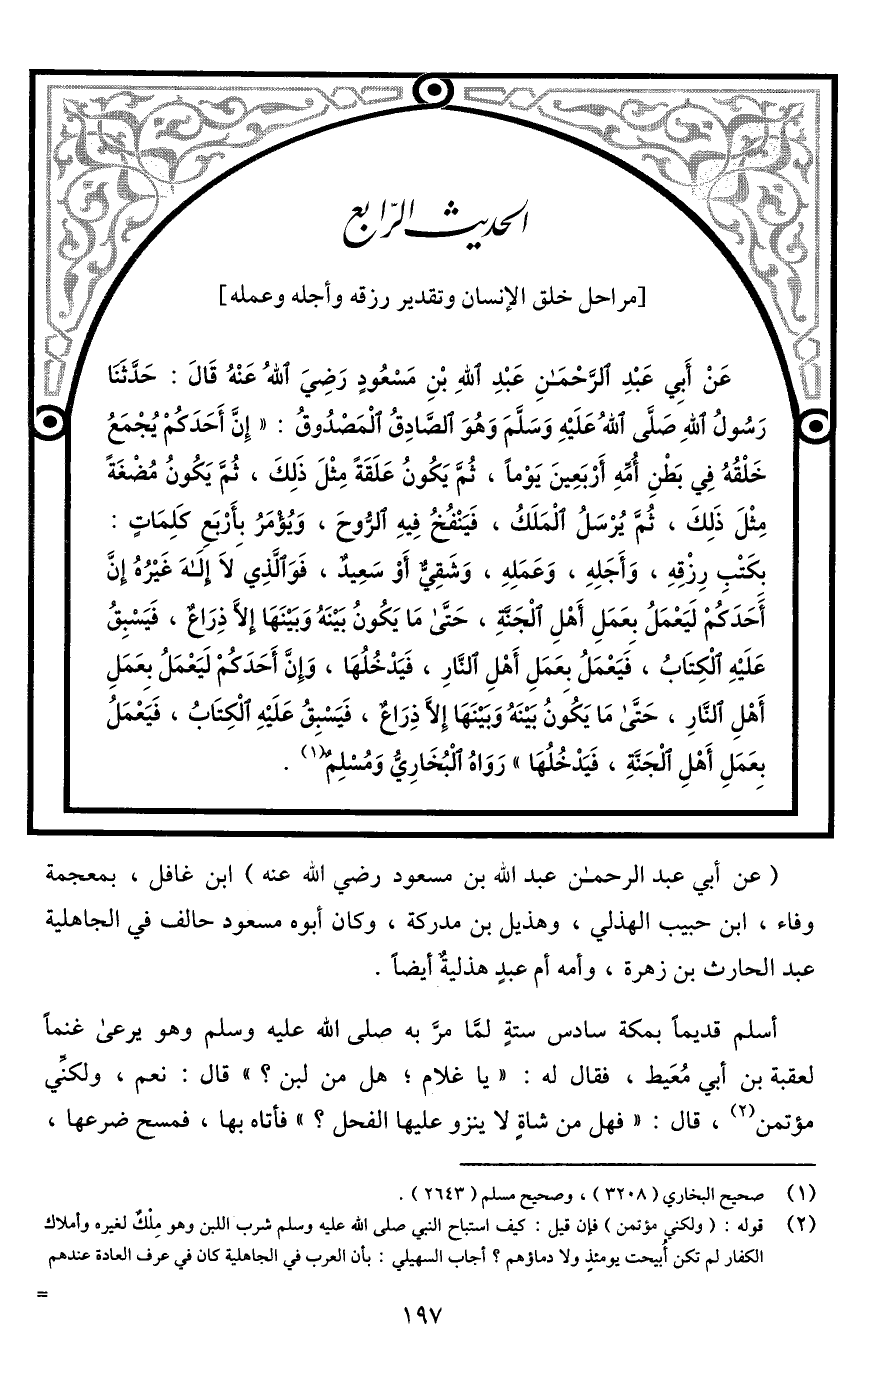 الحديث الرابع
[مراحل خلق الإنسان وتقدير رزقه وأجله وعمله]
عَنْ أَبِي عَبْدِ ٱلرَّحْمَـٰنِ عَبْدِ ٱللهِ بْنِ مَسْعُودٍ رَضِيَ ٱللهُ عَنْهُ قَالَ : حَدَّثَنَا
رَسُولُ ٱللهِ صَلَّى ٱللهُ عَلَيْهِ وَسَلَّمَ وَهُوَ ٱلصَّادِقُ ٱلْمَصْدُوقُ : « إِنَّ أَحَدَكُمْ يُجْمَعُ
خَلْقُهُ فِي بَطْنِ أُمِّهِ أَرْبَعِينَ يَوْماً ، ثُمَّ يَكُونُ عَلَقَةً مِثْلَ ذَلِكَ ، ثُمَّ يَكُونُ مُضْغَةً
مِثْلَ ذَلِكَ ، ثُمَّ يُرْسَلُ ٱلْمَلَكُ ، فَيَنْفُخُ فِيهِ ٱلرُّوحَ ، وَيُؤْمَرُ بِأَرْبَعِ كَلِمَاتٍ :
بِكَتْبِ رِزْقِهِ ، وَأَجَلِهِ ، وَعَمَلِهِ ، وَشَقِيٌّ أَوْ سَعِيدٌ ، فَوَٱلَّذِي لاَ إِلَـٰهَ غَيْرُهُ إِنَّ
أَحَدَكُمْ لَيَعْمَلُ بِعَمَلِ أَهْلِ ٱلْجَنَّةِ ، حَتَّىٰ مَا يَكُونُ بَيْنَهُ وَبَيْنَهَا إِلاَّ ذِرَاعٌ ، فَيَسْبِقُ
عَلَيْهِ ٱلْكِتَابُ ، فَيَعْمَلُ بِعَمَلِ أَهْلِ ٱلنَّارِ ، فَيَدْخُلُهَا ، وَإِنَّ أَحَدَكُمْ لَيَعْمَلُ بِعَمَلِ
أَهْلِ ٱلنَّارِ ، حَتَّىٰ مَا يَكُونُ بَيْنَهُ وَبَيْنَهَا إِلاَّ ذِرَاعٌ ، فَيَسْبِقُ عَلَيْهِ ٱلْكِتَابُ ، فَيَعْمَلُ
بِعَمَلِ أَهْلِ ٱلْجَنَّةِ ، فَيَدْخُلُهَا » رَوَاهُ ٱلْبُخَارِيُّ وَمُسْلِمٌ(١) .
( عن أبي عبد الرحمـٰن عبد الله بن مسعود رضي الله عنه ) ابن غافل ، بمعجمة
وفاء ، ابن حبيب الهذلي ، وهذيل بن مدركة ، وكان أبوه مسعود حالف في الجاهلية
عبد الحارث بن زهرة ، وأمه أم عبدٍ هذليةٌ أيضاً .
أسلم قديماً بمكة سادس ستةٍ لمَّا مرَّ به صلى الله عليه وسلم وهو يرعىٰ غنماً
لعقبة بن أبي مُعَيط ، فقال له : « يا غلام ؛ هل من لبن ؟ » قال : نعم ، ولكنِّي
مؤتمن(٢) ، قال : « فهل من شاةٍ لا ينزو عليها الفحل ؟ » فأتاه بها ، فمسح ضرعها ،
(١) صحيح البخاري ( ٣٢٠٨ ) ، وصحيح مسلم ( ٢٦٤٣ ) .
(٢) قوله : ( ولكني مؤتمن ) فإن قيل : كيف استباح النبي صلى الله عليه وسلم شرب اللبن وهو مِلْكٌ لغيره وأملاك
الكفار لم تكن أُبيحت يومئذٍ ولا دماؤهم ؟ أجاب السهيلي : بأن العرب في الجاهلية كان في عرف العادة عندهم
=
١٩٧